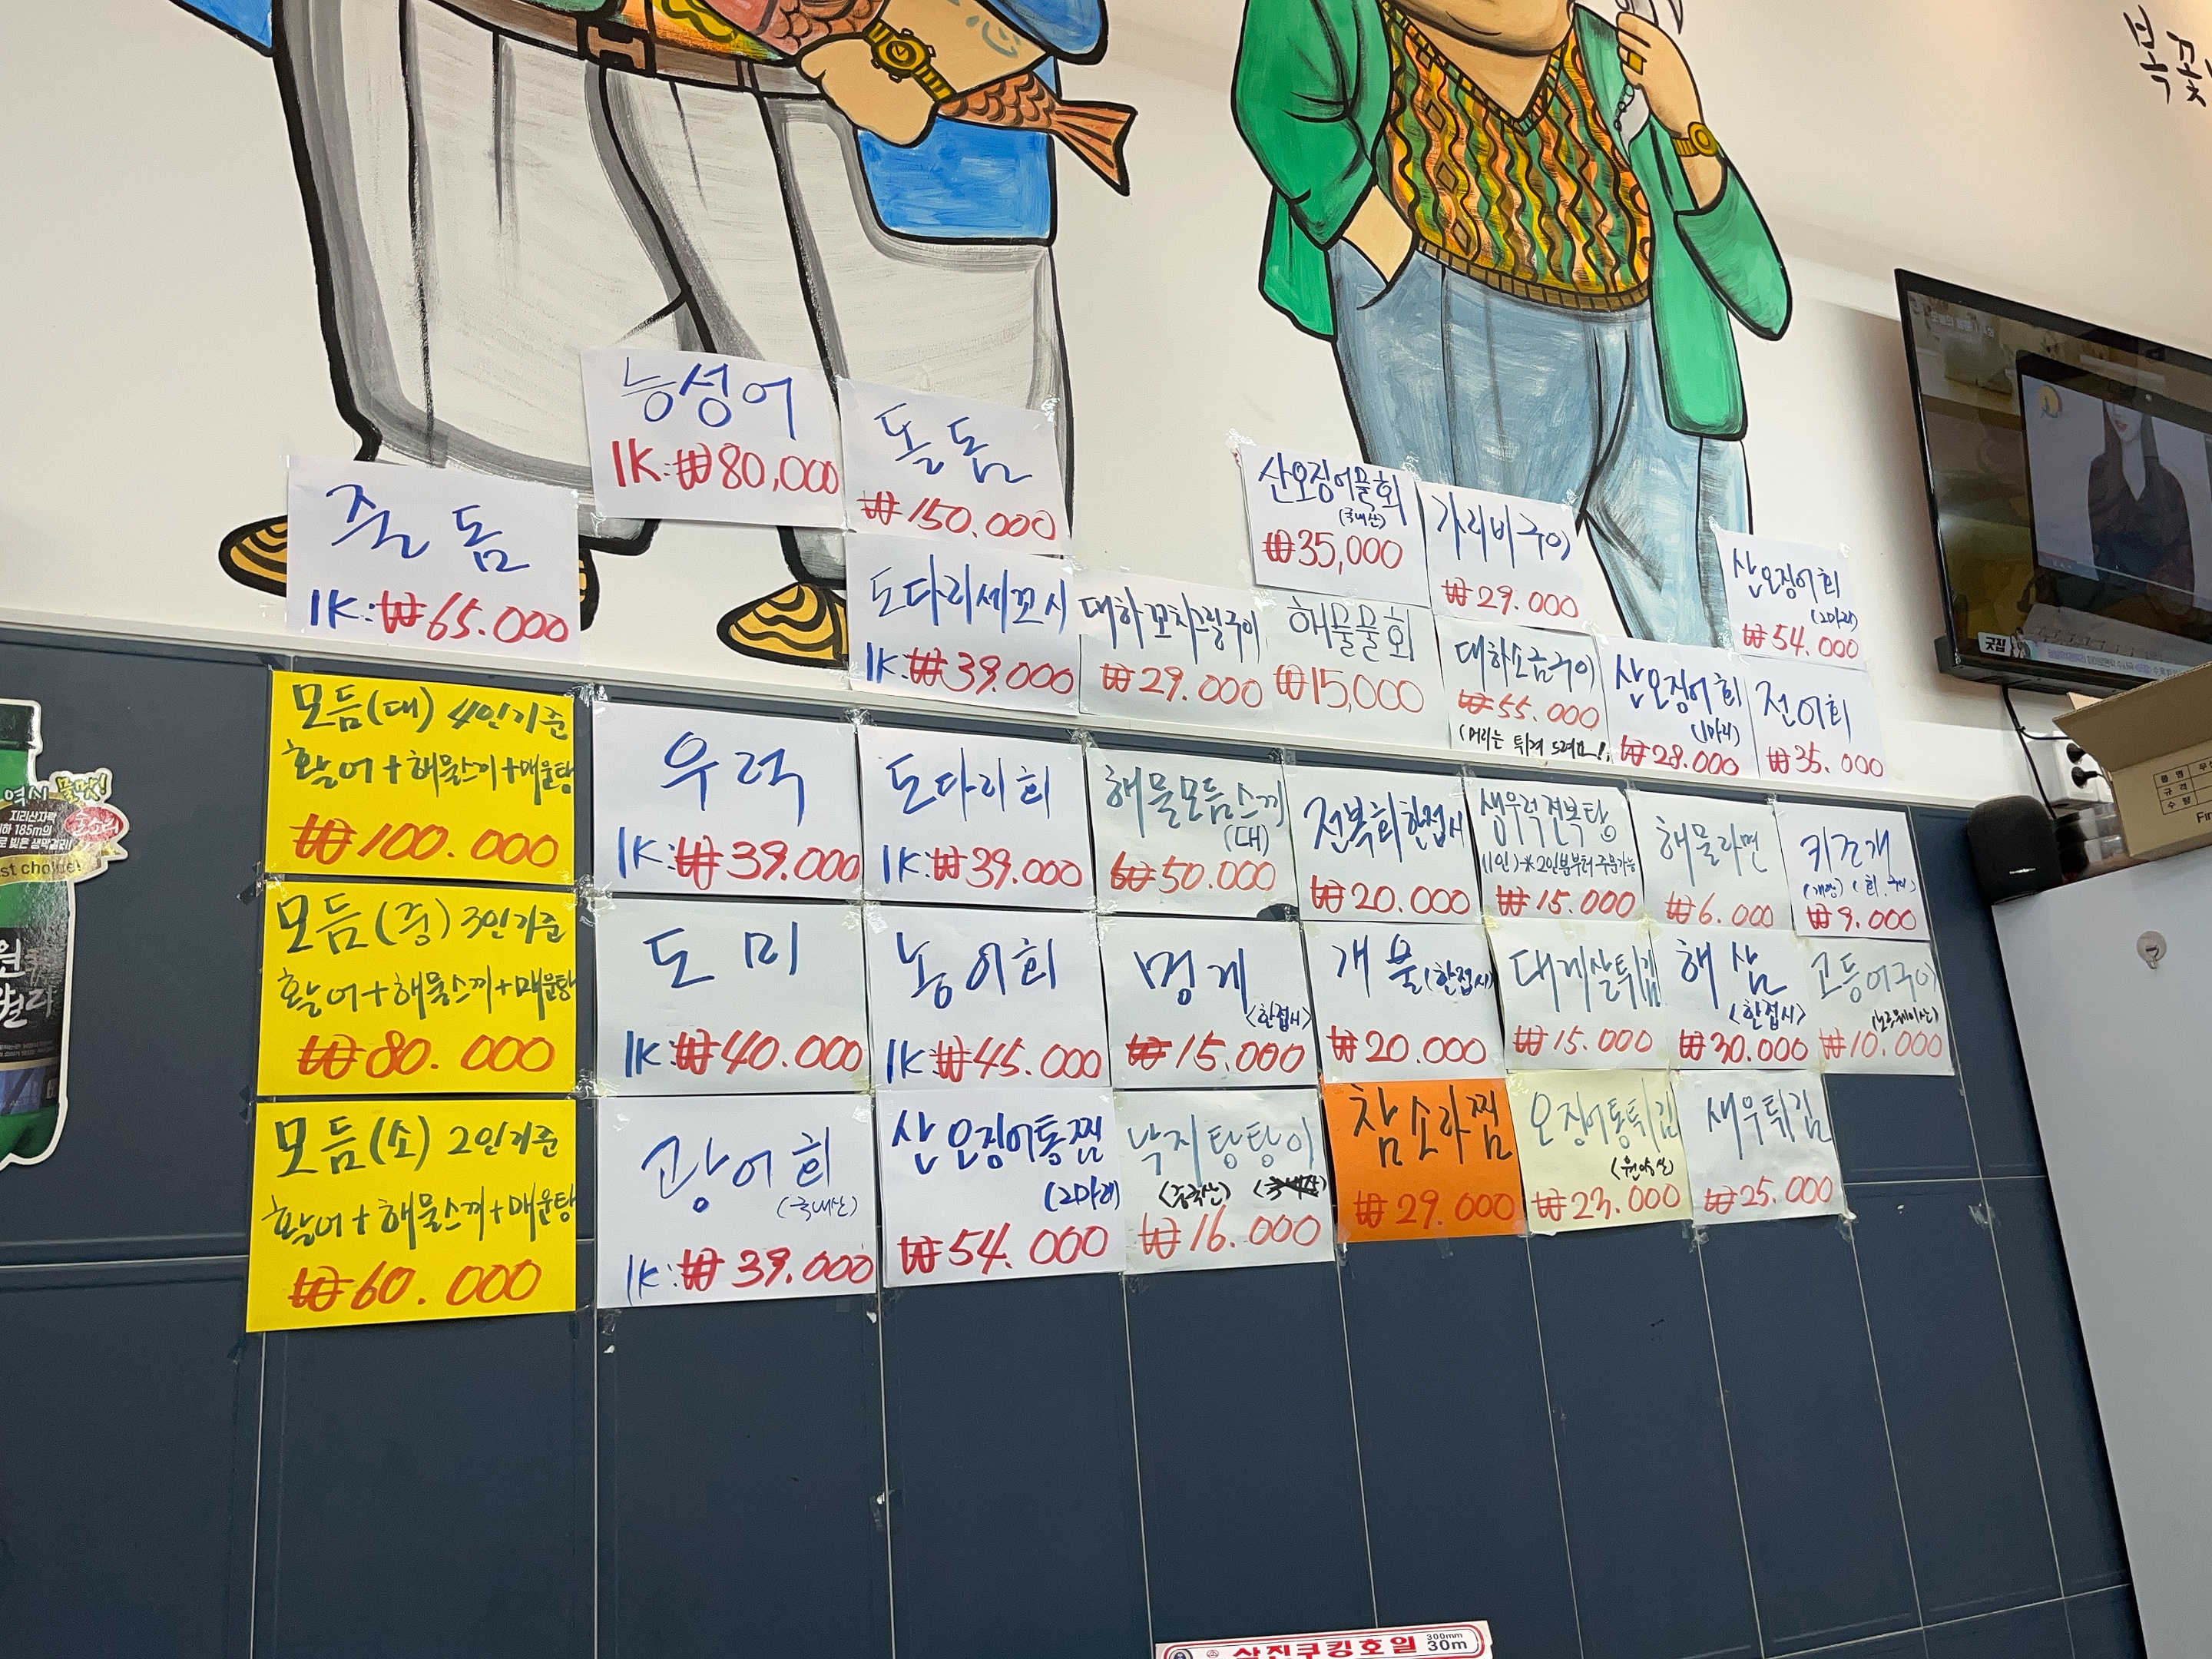 능성어
1K:₩80,000
돌돔
₩150.000
줄돔
1K:₩65.000
산오징어물회
(국내산)
₩35,000
가리비구이
₩29.000
산오징어회
(2마리)
₩54.000
도다리세꼬시
1K:₩39.000
대하꼬치그릴구이
₩29.000
해물물회
₩15,000
대하소금구이
₩55.000
(머리는 튀겨 드려요!)
산오징어회
(1마리)
₩28.000
전어회
₩35.000
모듬(대) 4인기준
활어+해물스끼+매운탕
₩100.000
우럭
1K:₩39.000
도다리회
1K:₩39.000
해물모듬스끼
(대)
₩50.000
전복회한접시
₩20.000
생우럭전복탕
(1인)※2인분부터 주문가능
₩15.000
해물라면
₩6.000
키조개
₩9.000
모듬(중) 3인기준
활어+해물스끼+매운탕
₩80.000
도미
1K:₩40.000
농어회
1K:₩45.000
멍게
<한접시>
₩15.000
개불(한접시)
₩20.000
대게살튀김
₩15.000
해삼
<한접시>
₩30.000
고등어구이
(노르웨이산)
₩10.000
모듬(소) 2인기준
활어+해물스끼+매운탕
₩60.000
광어회
(국내산)
1K:₩39.000
산오징어통찜
(2마리)
₩54.000
낙지탕탕이
<중국산>
₩16.000
참소라찜
₩29.000
오징어통튀김
<원양산>
₩23.000
새우튀김
₩25.000
역시 물맛!
지리산자락
하 185m의
로 빚은 생막걸리!
st choice!
굿집
품명
규격
수량
삼진쿠킹호일
300mm
30m